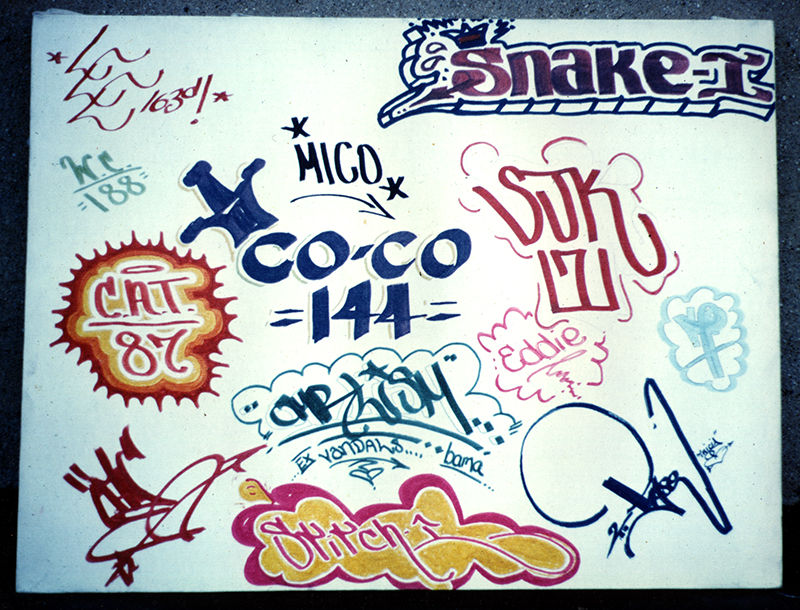 LEE
163d!
Snake-I
W.C.
188
MICO
CO-CO
=144=
SJK
171
C.A.T.
87
Eddie
CHRLISM
EX VANDALS....
bama
Stitch-I